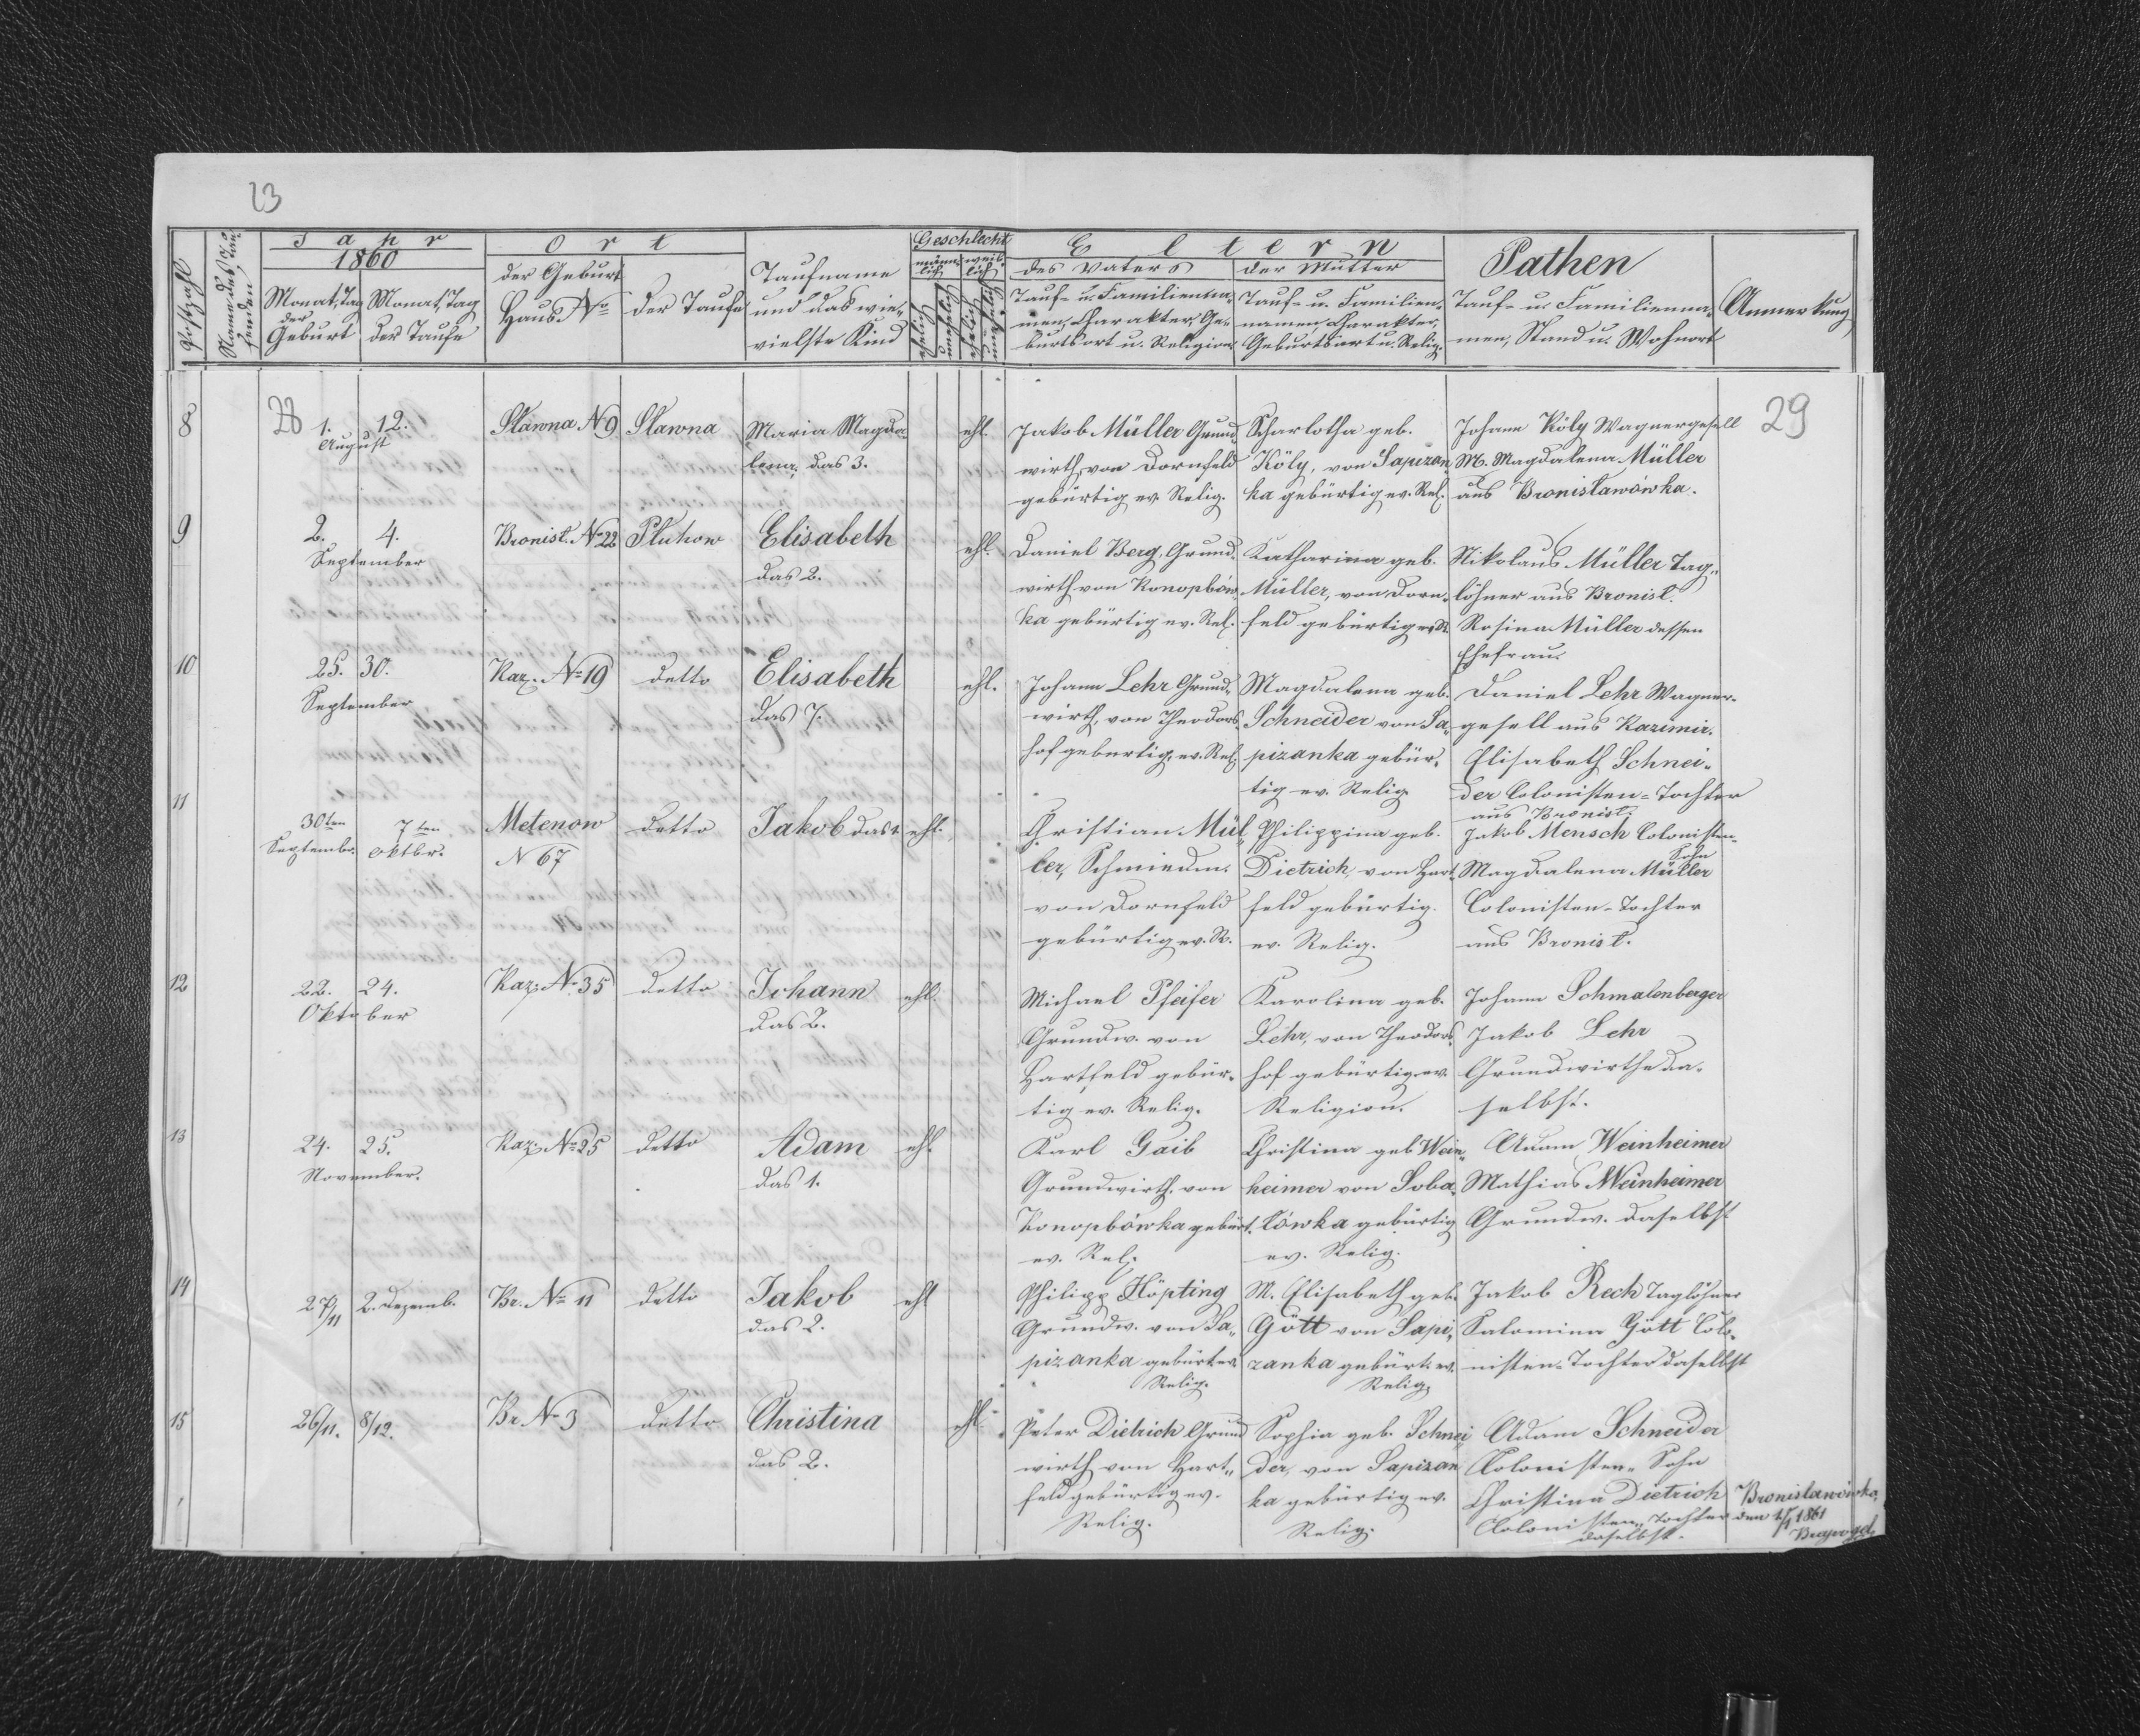 23
Postzahl
Name des Taufenden
Jahr
1860
Monat, Tag der Geburt
Monat, Tag der Taufe
Ort
der Geburt
Haus No
der Taufe
Taufname
und das wie-
vielste Kind
Geschlecht
männ-lich
weib-lich
ehelich
unehelich
ehelich
unehelich
Eltern
des Vaters
der Mutter
Tauf- u. Familienna-
men, Charakter, Ge-
burtsort u. Religion
Tauf- u. Familien-
namen, Charakter,
Geburtsort u. Relig.
Pathen
Tauf- u. Familienna-
men, Stand u. Wohnort
Anmerkung
8
28
1. 12.
August
Sławna No 9
Sławna
Maria Magda-
lena, das 3.
ehl.
Jakob Müller Grund-
wirth, von Dornfeld
gebürtig ev. Relig.
Scharlotha geb.
Köly, von Sapizan-
ka gebürtig ev. Rel.
Johann Köly Wagnergesell
M. Magdalena Müller
aus Bronisławówka.
29
9
2. 4.
September
Bronisł. No 22
Pluhow
Elisabeth
das 2.
ehl.
Daniel Berg, Grund-
wirth von Konopków-
ka gebürtig ev. Rel.
Katharina geb.
Müller, von Dorn-
feld gebürtig ev. R.
Nikolaus Müller Tag-
löhner aus Bronisł.
Rosina Müller dessen
Ehefrau.
10
25. 30.
September
Kaz. No 19
detto
Elisabeth
das 7.
ehl.
Johann Lehr Grund-
wirth, von Theodors-
hof gebürtig, ev. Rel.
Magdalena geb.
Schneider von Sa-
pizanka gebür-
tig ev. Relig.
Daniel Lehr Wagner-
gesell aus Kazimir.
Elisabeth Schnei-
der Colonisten-Tochter
aus Bronisł.
11
30ten Septembr.
7ten Oktbr.
Metenow
N 67
detto
Jakob das 1.
ehl.
Christian Mül-
ler, Schmiedm.
von Dornfeld
gebürtig ev. R.
Philippina geb.
Dietrich, von Hart-
feld gebürtig.
ev. Relig.
Jakob Mensch Colonisten-
Sohn
Magdalena Müller
Colonisten-Tochter
aus Bronisł.
12
22. 24.
Oktober
Kaz. No 35
detto
Johann
das 2.
ehl.
Michael Pfeifer
Grundw. von
Hartfeld gebür-
tig ev. Relig.
Karolina geb.
Lehr, von Theodors-
hof gebürtig ev.
Religion.
Johann Schmalenberger
Jakob Lehr
Grundwirthe da-
selbst.
13
24. 25.
November.
Kaz. No 25
detto
Adam
das 1.
ehl.
Karl Gaib
Grundwirth, von
Konopkówka gebürt.
ev. Rel.
Christina geb Wein-
heimer von Soba-
lówka gebürtig
ev. Relig.
Adam Weinheimer
Mathias Weinheimer
Grundw. daselbst
14
27/11
2. Dezemb.
Br. No 11
detto
Jakob
das 2.
ehl
Philipp Höpting
Grundw. von Sa-
pizanka gebürt ev.
Relig.
M. Elisabeth geb.
Gött von Sapi-
zanka gebürt. ev.
Relig.
Jakob Rech Taglöhner
Salomina Gött Colo-
nisten-Tochter daselbst
15
26/11. 8/12.
Br. No 3
detto
Christina
das 2.
ehl.
Peter Dietrich Grund
wirth von Hart-
feld gebürtig ev.
Relig.
Sophia geb. Schnei-
der, von Sapizan
ka gebürtig ev.
Relig.
Adam Schneider
Colonisten-Sohn
Christina Dietrich
Colonisten-Tochter
daselbst.
Bronisławówka,
den 1/1 1861